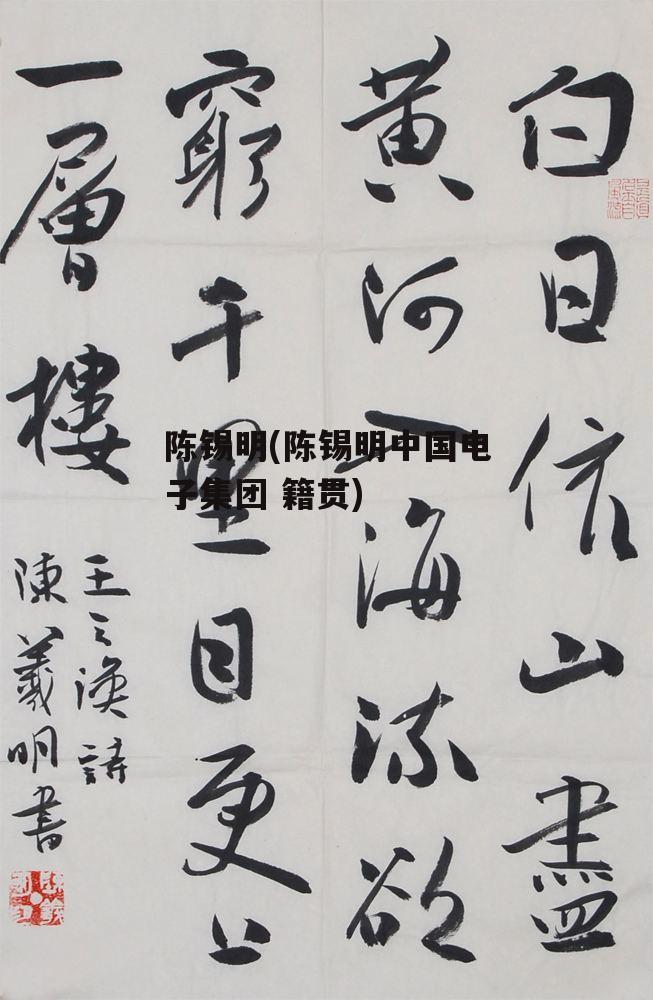 白日依山盡
黄河入海流欲
窮千里目更上
一層樓
王之渙詩
陳義明書
陈锡明(陈锡明中国电
子集团 籍贯)